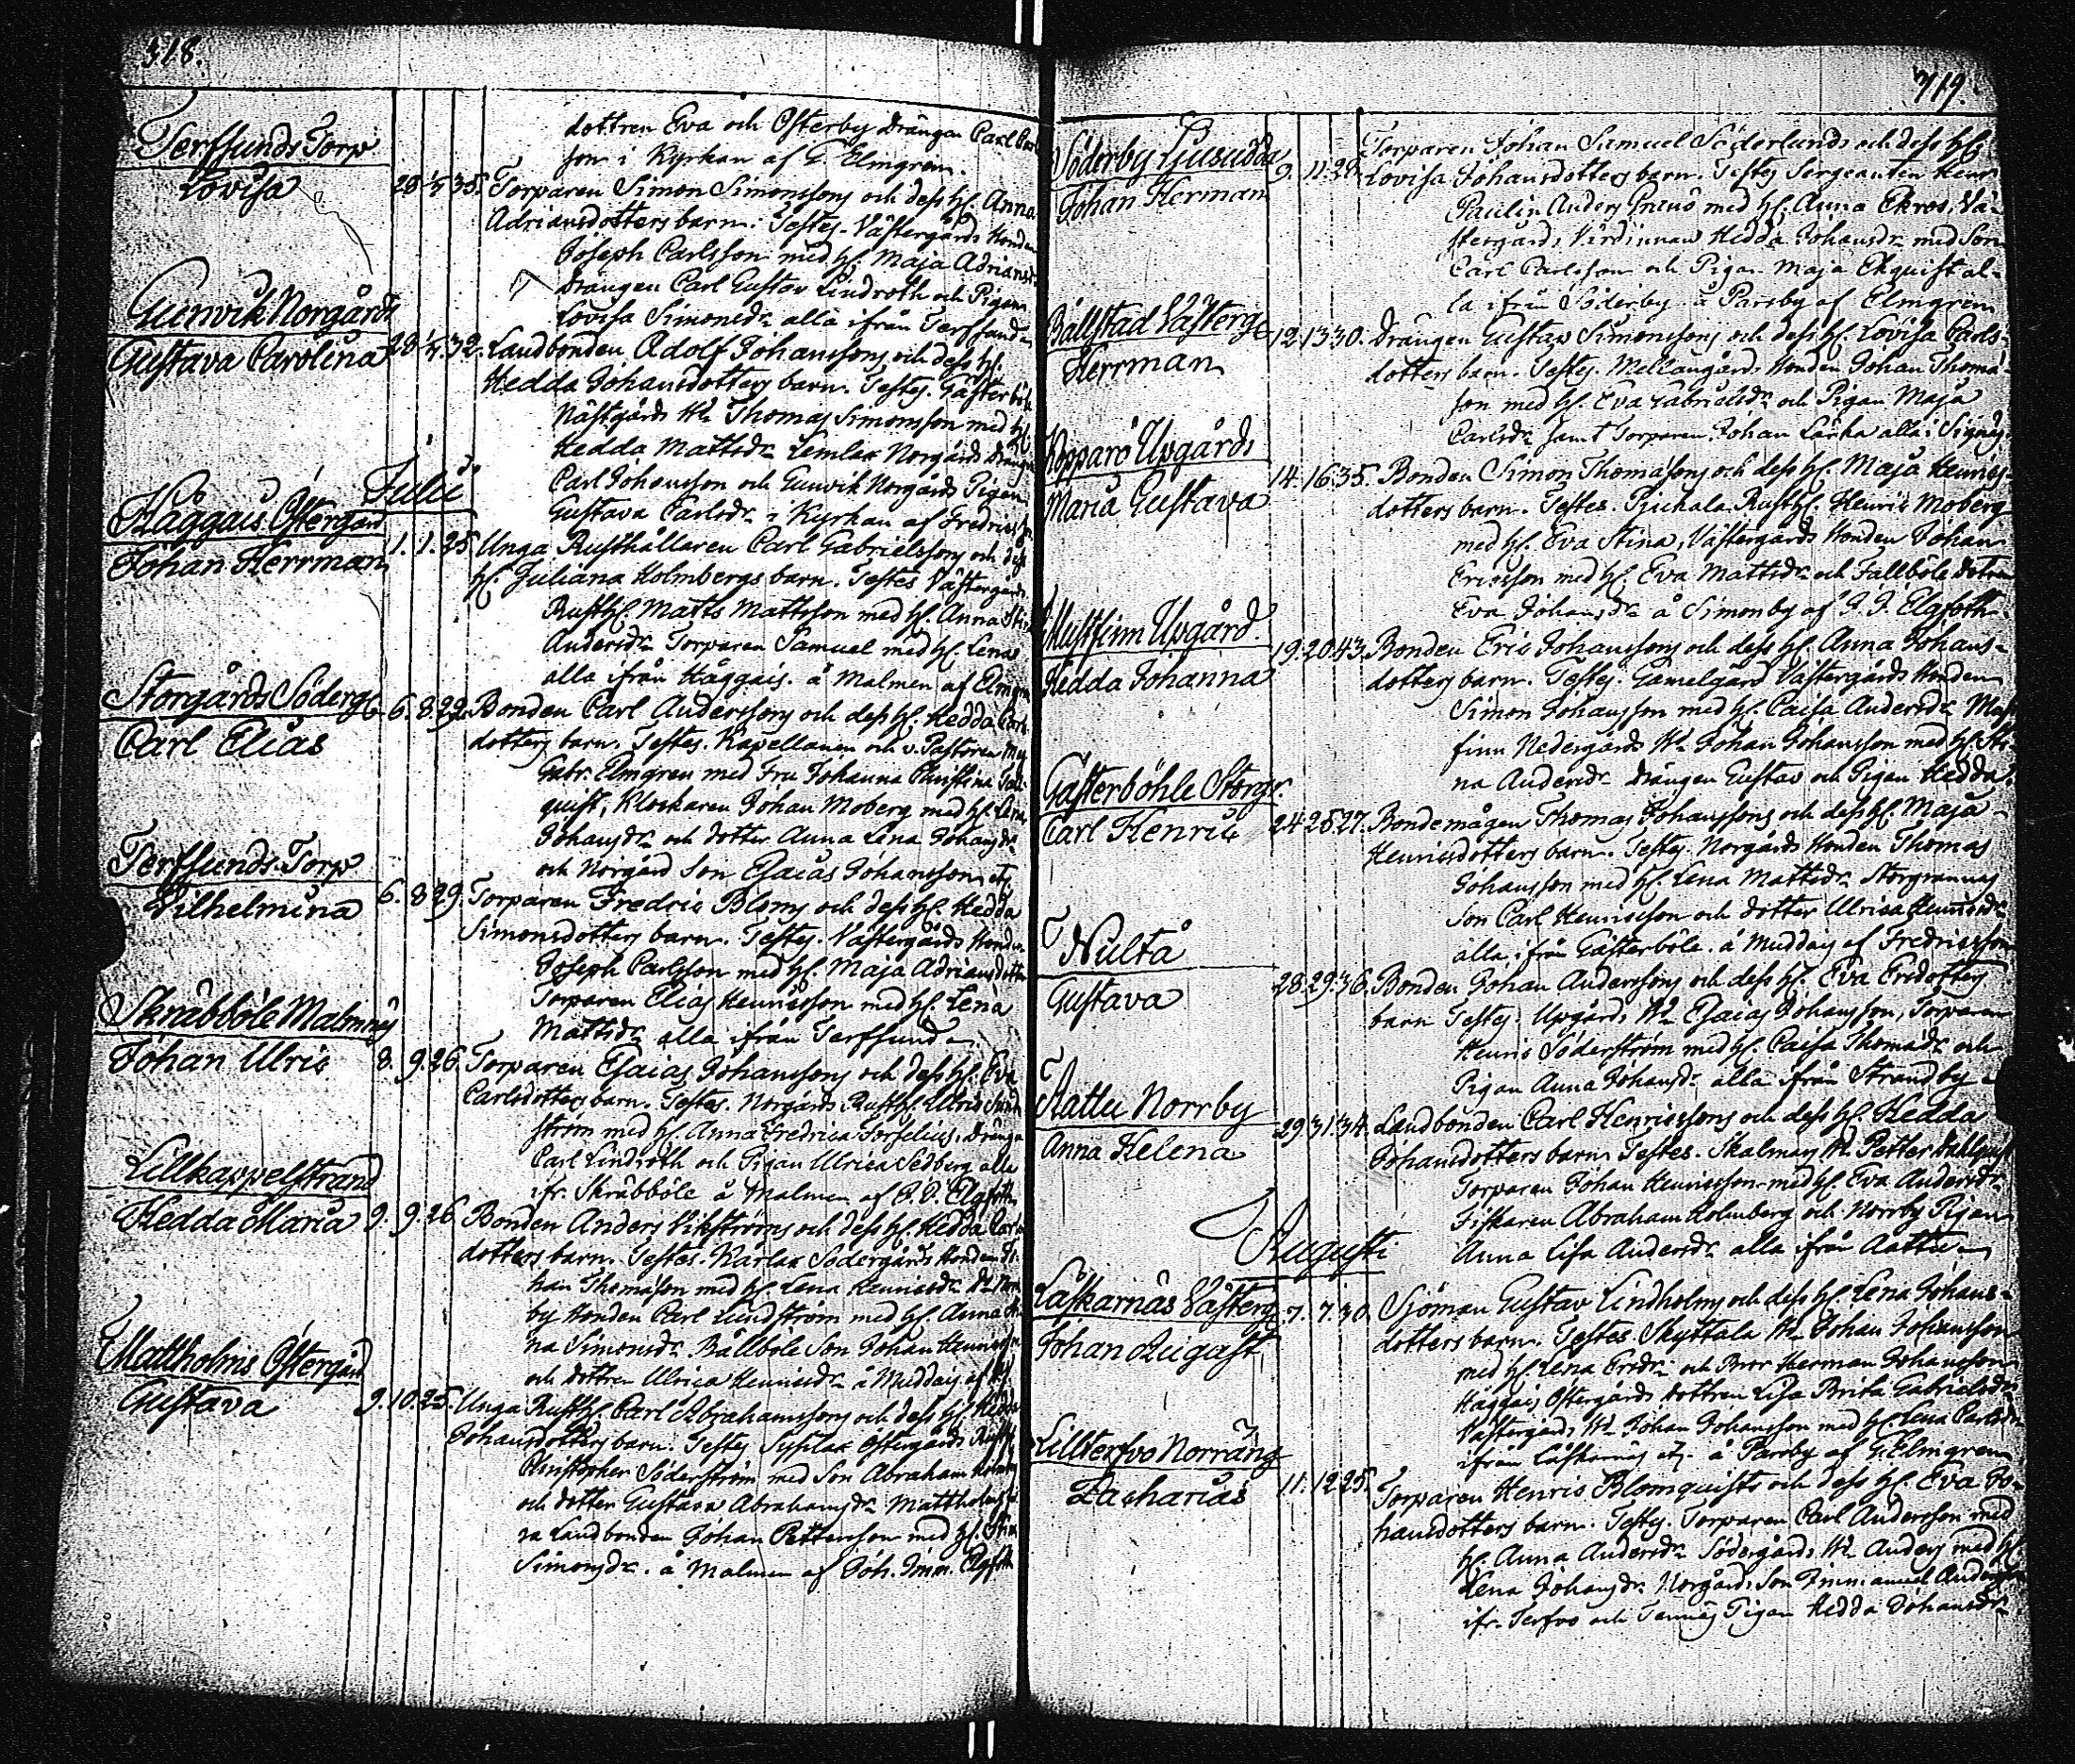 318.
dottren Eva och Österby Drängen Carl
son i Kyrkan af G. Elmgren.
Terfsunds Torp
Lovisa
28 1/7 35. Torparen Simon Simonssons och dess H. Anna
Adriansdotters barn. Testes. Västergårds Bonden
Joseph Carlsson med H. Maja Adriansdr
Drängen Carl Gustav Lindroth och Pigan
Lovisa Simonsdr alla ifrån Terfsund
Gunvik Norgårds
Gustava Carolina
28 1/7 32. Landbonden Adolf Johanssons och dess H.
Hedda Johansdotters barn. Testes. Gästerböle
Nästgårds Thomas Simonsson med H.
Hedda Mattsdr Lemlax Norgårds Dräng
Carl Johansson och Gunvik Norgårds Pigan
Gustava Carlsdr i Kyrkan af Fredricsson
Julii
Håggais Östergård
Johan Herrman
1. 1. 25. Unga Rusthållaren Carl Gabrielssons och dess
H. Juliana Holmbergs barn. Testes Västergårds
Rusth. Matts Mattsson med H. Anna Stina
Andersdr Torparen Samuel med H. Lena
alla ifrån Håggais. å Malmen af Elmgren
Storgårds Söderg
Carl Elias
6. 8. 29. Bonden Carl Anderssons och dess H. Hedda Carls
dotters barn. Testes. Kapellanen och v. Pastoren Mag
Gabr. Elmgren med Fru Johanna Christina Tall
quist, Klockaren Johan Moberg med H. Lena
Johansdr och dotter Anna Lena Johansdr
och Norgård Son Esaias Johansson etc
Terfsunds Torp
Vilhelmina
6. 8 29. Torparen Fredric Bloms och dess H. Hedda
Simonsdotters barn. Testes. Västergårds Bonden
Joseph Carlsson med H. Maja Adriansdotter
Torparen Elias Henricsson med H. Lena
Mattsdr alla ifrån Terfsund
Skräbböle Malmnäs
Johan Ulric
8. 9. 26. Torparen Esaias Johanssons och dess H. Eva
Carlsdotters barn. Testes. Norgårds Rusth. Ulric Sund
ström med H. Anna Fredrica Forselius, Dräng
Carl Lindroth och Pigan Ulrica Sedberg alla
ifr. Skräbböle å Malmen af J. J. Elgfoth
Lillkappelstrand
Hedda Maria
9. 9. 26 Bonden Anders Vikströms och dess H. Hedda Carls
dotters barn. Testes. Karlax Södergårds Bonden Jo
han Thomasson med H. Lena Henricsdr Norr
by Bonden Carl Lundström med H. Anna
na Simonsdr Bållböle Son Johan Henricsson
och dottren Ulrica Henricsdr å Muddais af
Mattholms Östergård
Gustava
9. 10. 25. Unga Rusth. Carl Abrahamssons och dess H. Hedda
Johansdotters barn. Testes Sysilax Östergårds Rusth
Christopher Söderström med Son Abraham
och dotter Gustava Abrahamsdr Mattholms
ra Landbonden Johan Pettersson med H. Stina
Simonsdr. å Malmen af Joh. Imm. Elgfoth
719.
Söderby Ljusudda
Johan Herman
9. 11. 29. Torparen Johan Samuel Söderlunds och dess H.
Lovisa Johansdotters barn. Testes Sergeanten Henr
Paulin Anders Graus med H. Anna Ekros, Vä-
stergårds Värdinnan Hedda Johansdr med Son
Carl Carlsson och Pigan Maja Ekquist al-
la ifrån Söderby å Parsby af Elmgren
Bällstad Västerg
Herrman
12. 13 30. Drängen Gustav Simonssons och dess H. Lovisa Carls-
dotters barn. Testes. Mellangårds Bonden Johan Thoma-
son med H. Eva Gabrielsdr och Pigan Maja
Carlsdr samt Torparen Johan Lärka alla i Signäs.
Kopparö Uppgårds
Maria Gustava
14. 16. 35. Bonden Simon Thomassons och dess H. Maja Henrics-
dotters barn. Testes. Pjukala Rusth. Henric Moberg
med H. Eva Stina, Västergårds Bonden Johan
Ericsson med H. Eva Mattsdr och Fallböle dotren
Eva Johansdr å Simonby af J. J. Elgfoth
Mustfinn Upgård.
Hedda Johanna
19. 20. 43. Bonden Eric Johanssons och dess H. Anna Johans-
dotters barn. Testes. Gamelgård Västergårds Bonden
Simon Johansson med H. Caisa Andersdr Must
finn Nedergårds Johan Johansson med H. Sti-
na Andersdr Drängen Gustav och Pigan Hedda.
Gästerböhle Storg
Carl Henric
24. 25. 27. Bondemågen Thomas Johanssons och dess H. Maja
Henricsdotters barn. Testes. Norgårds Bonden Thomas
Johansson med H. Lena Mattsdr Storgrannas
Son Carl Henricsson och dotter Ulrica Henricsdr
alla ifrån Gästerböle. å Muddais af Fredricsson
Nulto
Gustava
28. 29. 36. Bonden Johan Anderssons och dess H. Eva Ersdotters
barn Testes. Upgårds Esaias Johansson, Torparen
Henric Söderström med H. Caisa Thomasdr och
Pigan Anna Johansdr alla ifrån Strandby
Attu Norrby
Anna Helena
29. 31. 34. Landbonden Carl Henricssons och dess H. Hedda
Johansdotters barn Testes. Skalmars Petter Dahlquist
Torparen Johan Henricsson med H. Eva Andersdr
Fiskaren Abraham Holmberg och Norrby Pigan
Anna Lisa Andersdr alla ifrån Attu
Augusti
Läskarnäs Västerg
Johan August
7. 7. 30. Sjöman Gustav Lindholms och dess H. Lena Johans-
dotters barn. Testes Skyttala Johan Johansson
med H. Lena Ersdr och Bror Herman Johansson
Håggais Östergårds dottren Lisa Brita Gabrielsdr
Västergårds Johan Johansson med H. Lena Carlsdr
ifrån Läskarnäs etc. å Parsby af G. Elmgren
Lillterfvo Norräng
Zacharias
11. 12 25. Torparen Henric Blomquists och dess H. Eva Jo-
hansdotters barn. Testes. Torparen Carl Andersson med
H. Anna Andersdr Södergårds Anders med H.
Lena Johansdr Norgårds Son Immanuel Andersson
ifr. Terfvo och Tennäs Pigan Hedda Johansdr